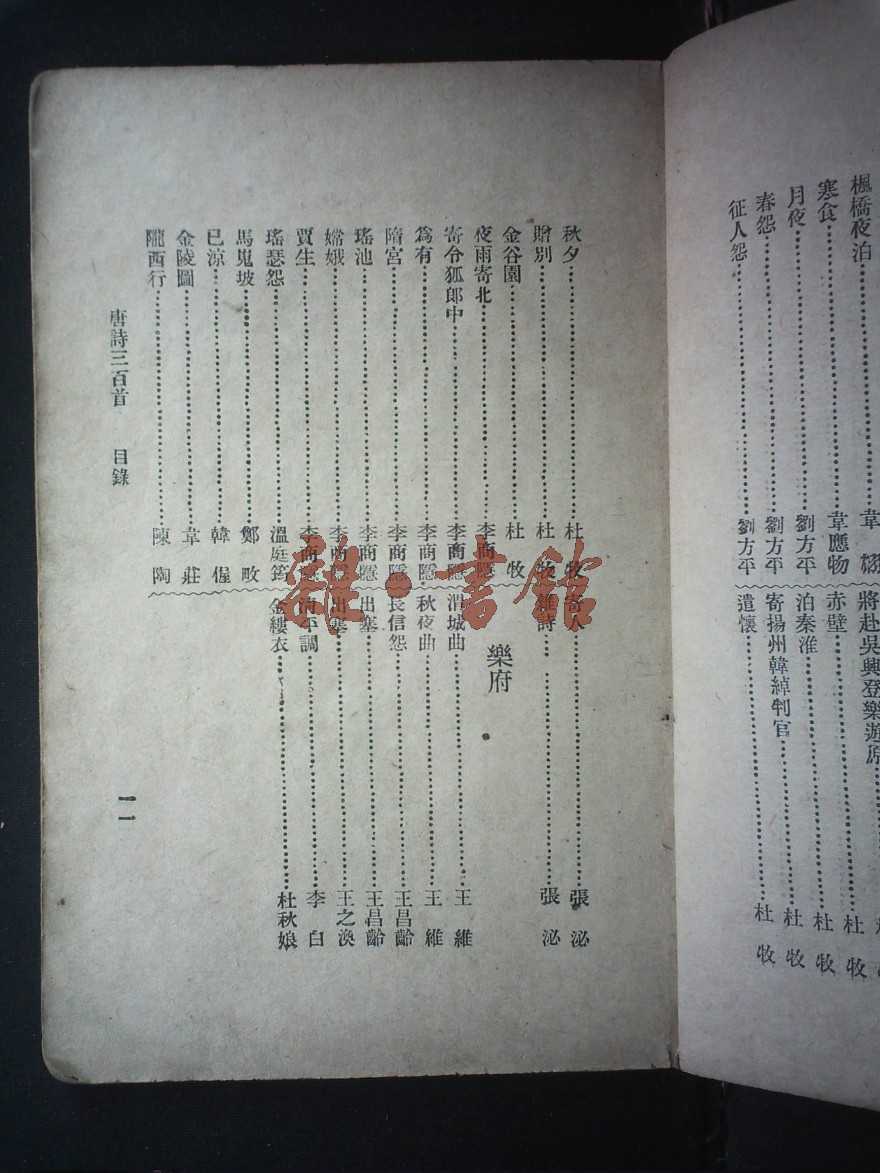 楓橋夜泊 韋
寒食 韋應物
月夜 劉方平
春怨 劉方平
征人怨 劉方平
將赴吳興登樂遊原 杜牧
赤壁 杜牧
泊秦淮 杜牧
寄揚州韓綽判官 杜牧
遣懷 杜牧
秋夕 杜牧
贈別 杜牧
金谷園 杜牧
夜雨寄北 李商隱
寄令狐郎中 李商隱
爲有 李商隱
隋宮 李商隱
瑤池 李商隱
嫦娥 李商隱
賈生 李商隱
瑤瑟怨 溫庭筠
馬嵬坡 鄭畋
已涼 韓偓
金陵圖 韋莊
隴西行 陳陶
寄人 張泌
雜詩 張泌
樂府
渭城曲 王維
秋夜曲 王維
長信怨 王昌齡
出塞 王昌齡
出塞 王之渙
清平調 李白
金縷衣 杜秋娘
唐詩三百首 目錄
一一
雜·書館